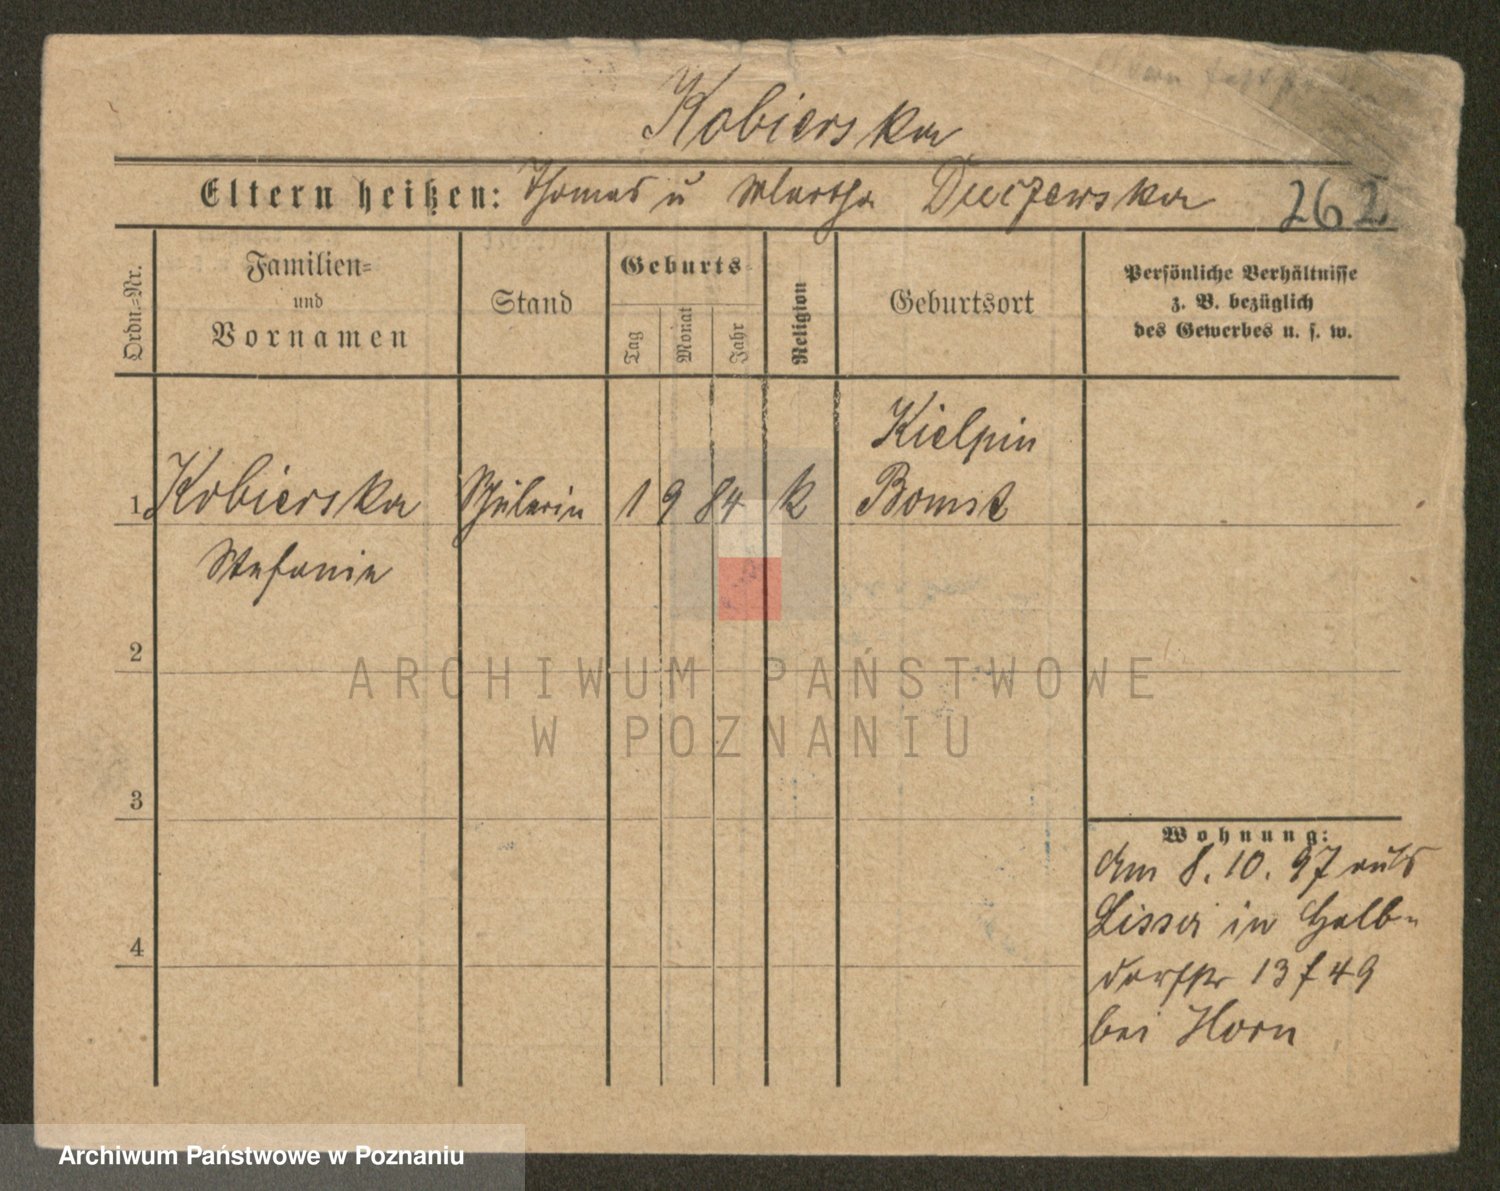 Kobierska
Eltern heißen: Thomas u Martha Duczewska 262
Ordn.-Nr.
Familien-
und
Vornamen
Stand
Geburts-
Tag
Monat
Jahr
Religion
Geburtsort
Persönliche Verhältnisse
z. B. bezüglich
des Gewerbes u. s. w.
Kielpin
1 Kobierska Schülerin 1 9 84 k Bomst
Stefanie
2
3
4
Wohnung:
Am 8. 10. 97 aus
Lissa in Halb-
dorfstr 13 f 49
bei Horn
ARCHIWUM PAŃSTWOWE
W POZNANIU
Archiwum Państwowe w Poznaniu